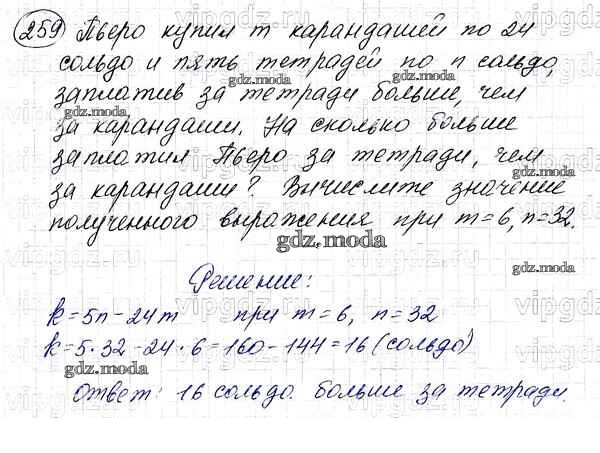 259 Пьеро купил m карандашей по 24
сольдо и пять тетрадей по n сольдо,
заплатив за тетради больше, чем
за карандаши. На сколько больше
заплатил Пьеро за тетради, чем
за карандаши? Вычислите значение
полученного выражения при m=6, n=32.
gdz.moda
Решение:
k=5n-24m при m=6, n=32
k=5·32-24·6=160-144=16 (сольдо)
gdz.moda
Ответ: 16 сольдо. больше за тетради.